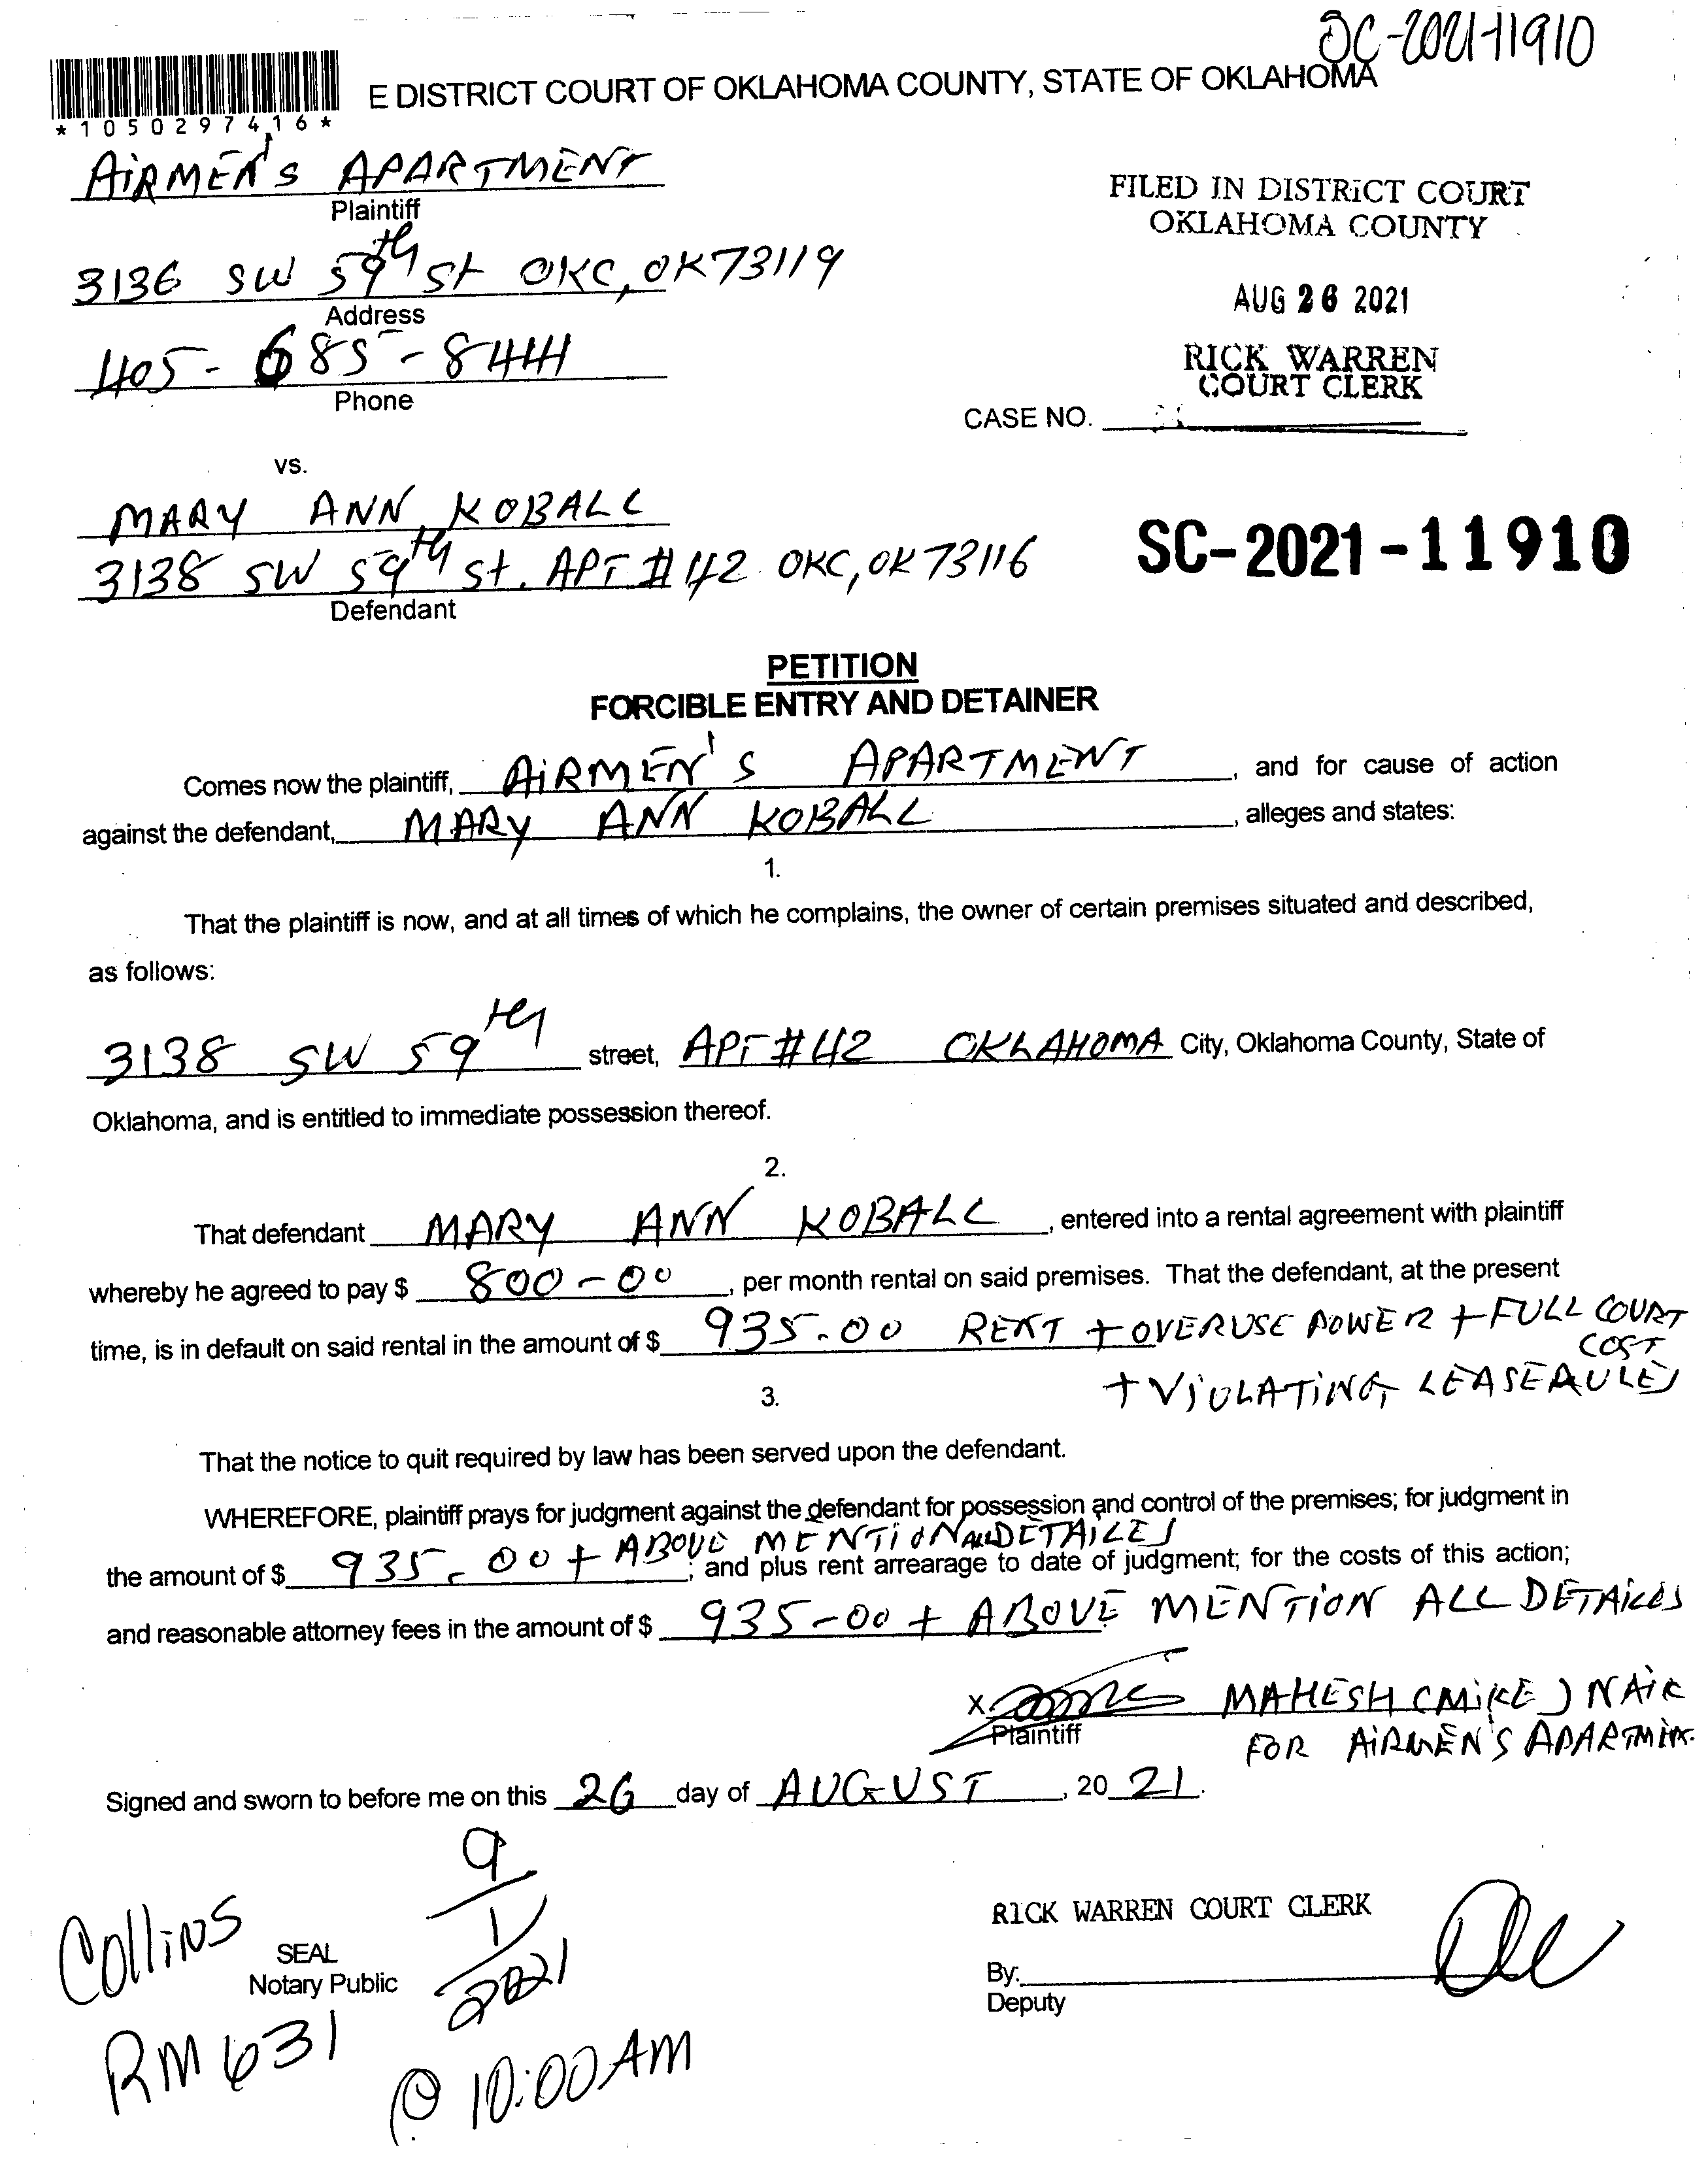 SC-2021-11910
E DISTRICT COURT OF OKLAHOMA COUNTY, STATE OF OKLAHOMA
*1050297416*
AIRMEN'S APARTMENT
Plaintiff
FILED IN DISTRICT COURT
OKLAHOMA COUNTY
3136 SW 59th St OKC, OK 73119
Address
AUG 26 2021
405-685-8441
Phone
RICK WARREN
COURT CLERK
CASE NO.
vs.
MARY ANN KOBALL
3138 SW 59th St. APT #42 OKC, OK 73116
Defendant
SC-2021-11910
PETITION
FORCIBLE ENTRY AND DETAINER
Comes now the plaintiff, AIRMEN'S APARTMENT, and for cause of action
against the defendant, MARY ANN KOBALL, alleges and states:
1.
That the plaintiff is now, and at all times of which he complains, the owner of certain premises situated and described,
as follows:
3138 SW 59th street, APT #42 OKLAHOMA City, Oklahoma County, State of
Oklahoma, and is entitled to immediate possession thereof.
2.
That defendant MARY ANN KOBALL, entered into a rental agreement with plaintiff
whereby he agreed to pay $ 800-00, per month rental on said premises. That the defendant, at the present
time, is in default on said rental in the amount of $ 935.00 RENT + OVERUSE POWER + FULL COURT
COST
+ VIOLATING LEASE RULES
3.
That the notice to quit required by law has been served upon the defendant.
WHEREFORE, plaintiff prays for judgment against the defendant for possession and control of the premises; for judgment in
the amount of $ 935.00 + ABOVE MENTION ALL DETAILES; and plus rent arrearage to date of judgment; for the costs of this action;
and reasonable attorney fees in the amount of $ 935-00 + ABOVE MENTION ALL DETAILES
X MAHESH (MIKE) NAIR
Plaintiff
FOR AIRMEN'S APARTMEN.
Signed and sworn to before me on this 26 day of AUGUST, 20 21.
9/1/2021
Collins
SEAL
Notary Public
RM 631
@ 10:00 AM
RICK WARREN COURT CLERK
By:
Deputy